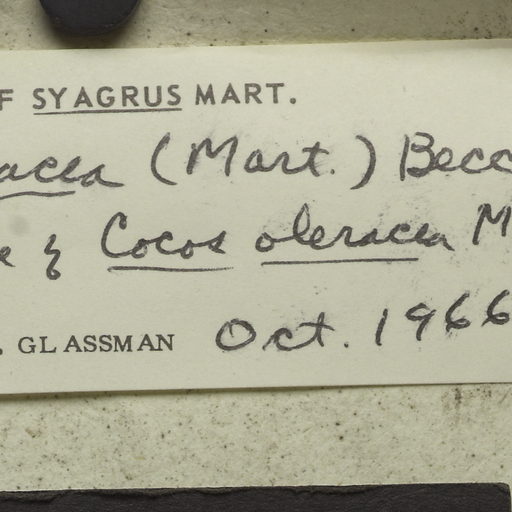 F SYAGRUS MART.
acea (Mart.) Becc
e of Cocos oleracea M
. GLASSMAN Oct. 1966